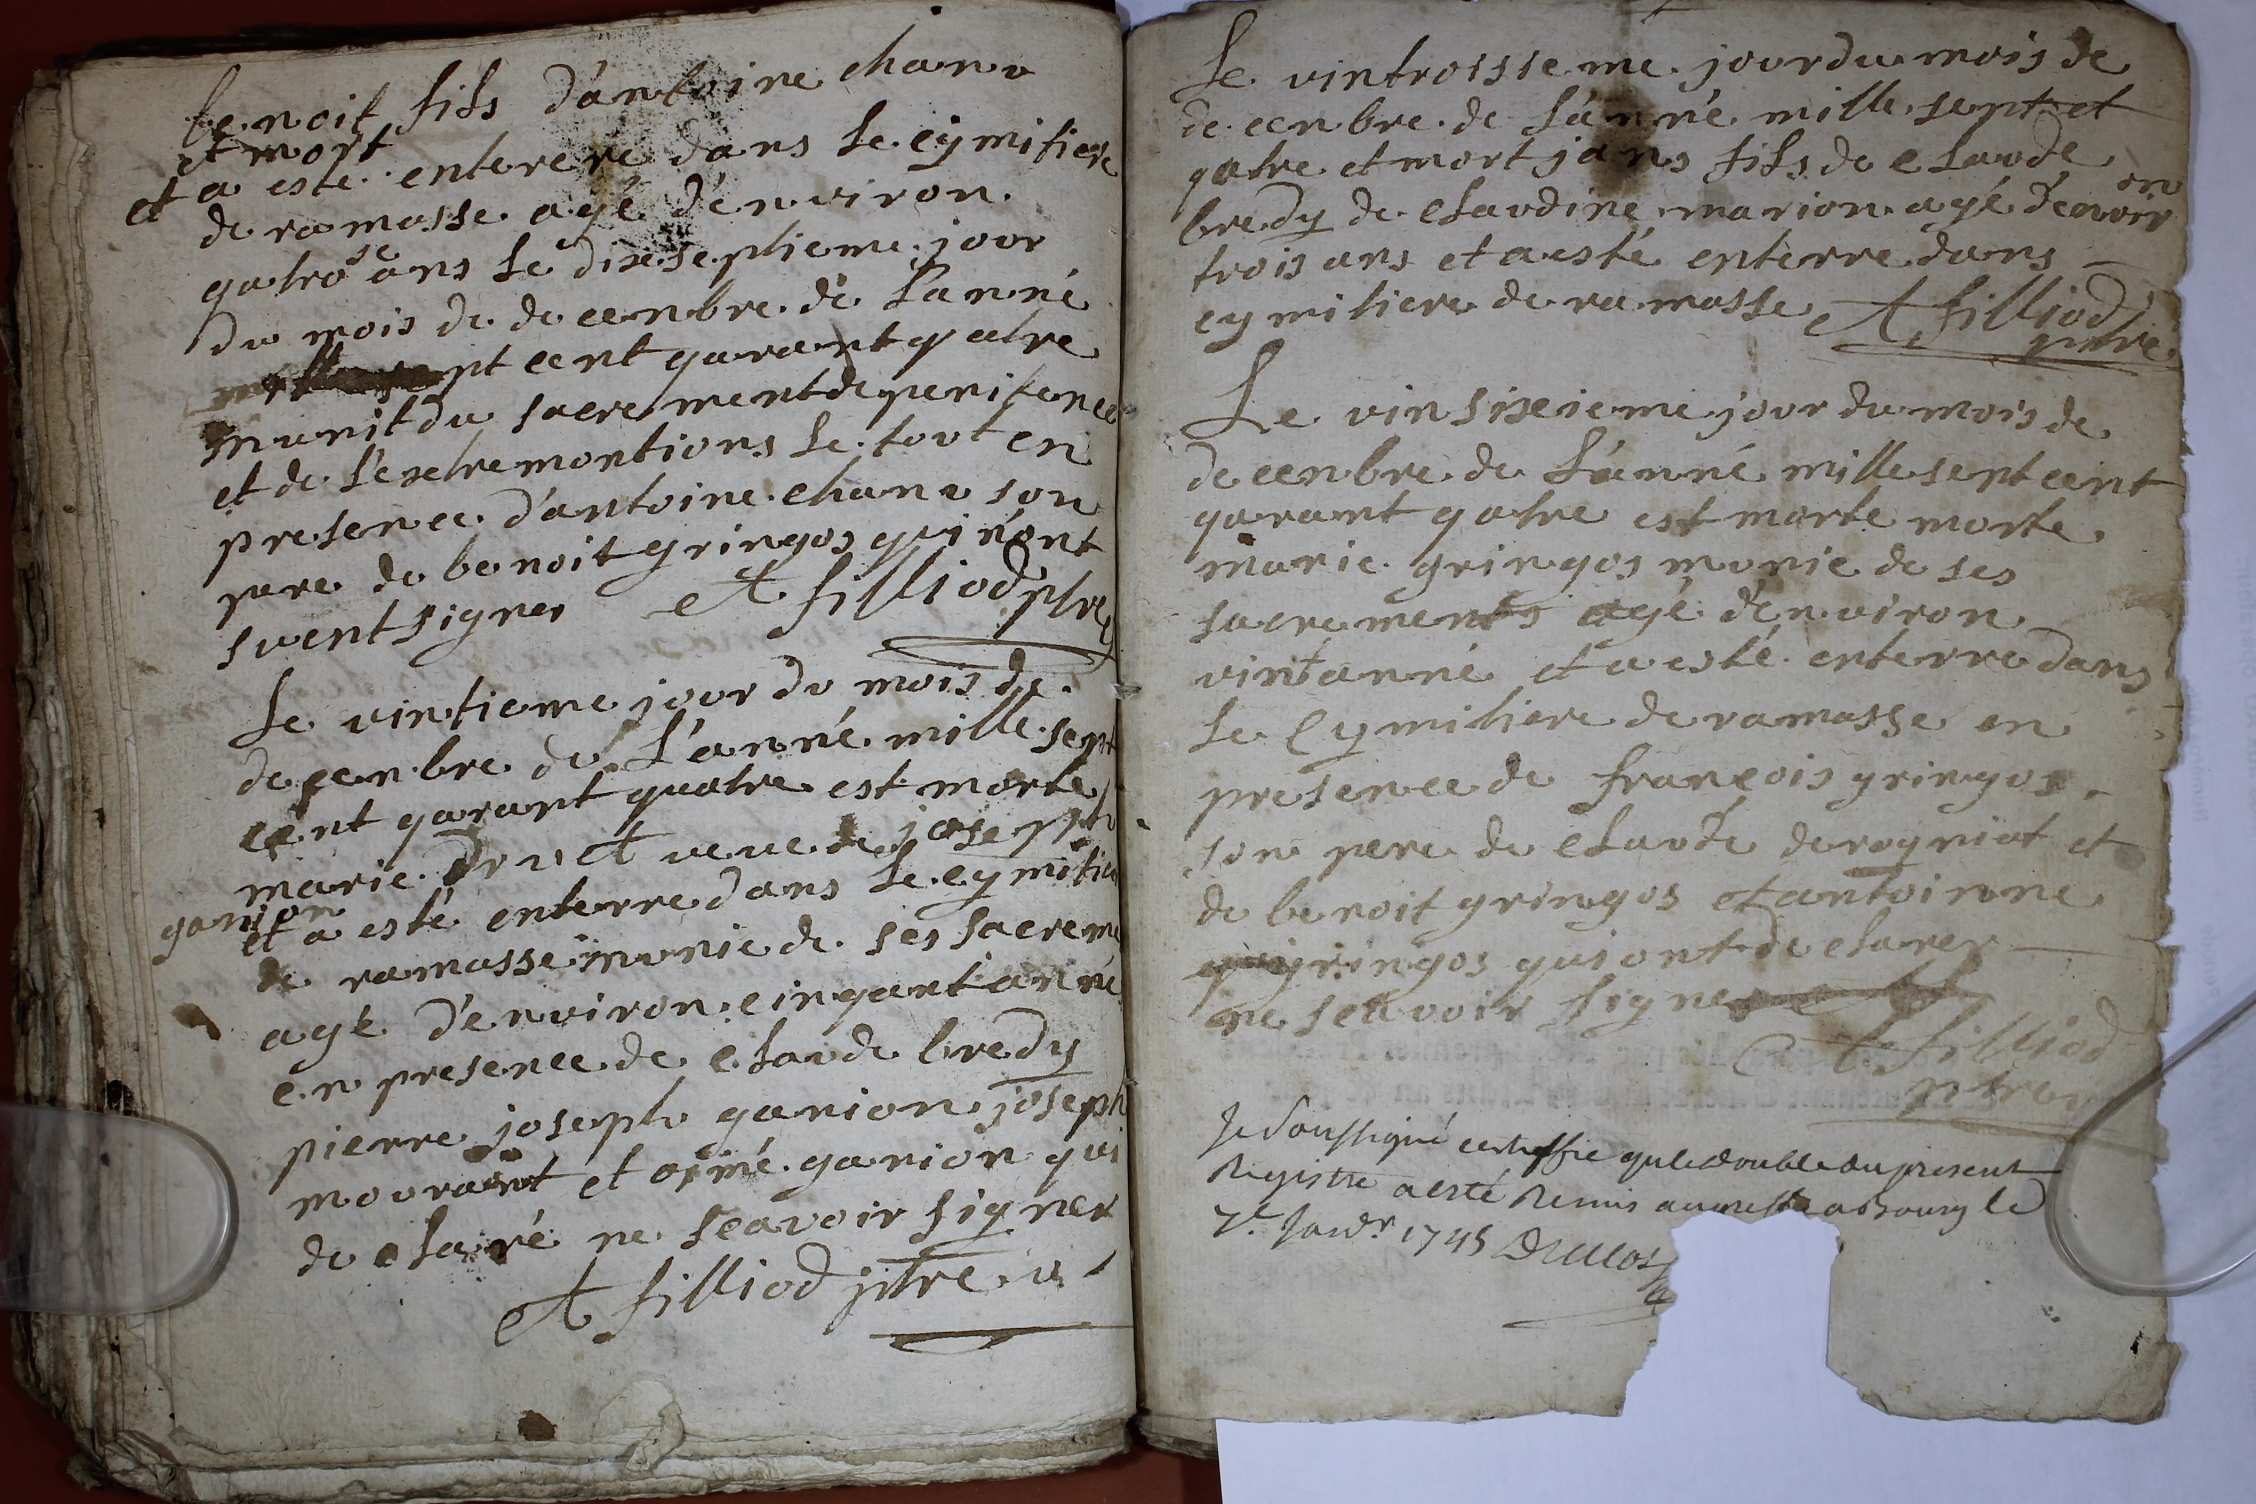 benoit fils d'antoine chanu
et mort
et a esté enterere dans le cymitiere
de ramasse agé d'environ
se
gatro ans le dixseptieme jour
du mois de decenbre de l'anné
pt cent garant gatre
munit du sacrement de penitence
et de l'extremontions le tout en
presence d'antoine chanu son
pere de benoit gringos qui n'ont
suent signer et filliod ptre
le vintieme jour du mois de
decenbre de l'anné mille sept
cent garant quatre est morte
marie druet veuve de joseph
ganion
et a esté enterre dans le cymitie
de ramasse munie de ses sacreme
agé d'environ cingant anné
en presence de claude bredy
pierre joseph ganion joseph
mourant et aimé ganion qui
de claré ne scavoir signer
et filliod ptre v
Le vintroissieme jour du mois de
decenbre de l'anné mille sept et
gatre et mort jans fils de claude
en
bredy de claudine marion agé d'envoir
trois ans et a esté enterre dans
cymitiere de ramasse et filliod
ptre
Le vin sixcieme jour du mois de
decenbre de l'anné mille sept cent
garant gatre est morte morte
marie gringos munie de ses
sacrements agé d'environ
vintanné et a esté enterre dans
le cymitiere de ramasse en
presence de françois gringos
son pere de claude derogniat et
de benoit gringos et antoinne
gringos qui ont de clarer
ne scavoir signer
et filliod
ptre v
Je soussigné certiffie que le double du present
Registre a esté Remis au greffe a Bourg le
7e Janvr 1745